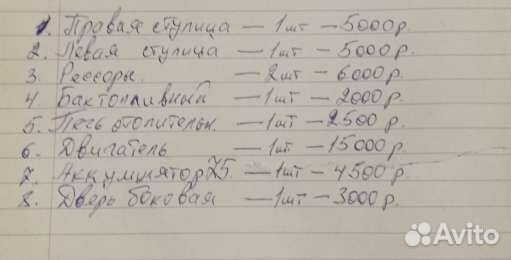 1. Правая ступица — 1 шт — 5000 р.
2. Левая ступица — 1 шт — 5000 р.
3. Рессоры. — 2 шт — 6000 р.
4. Бак топливный — 1 шт — 2000 р.
5. Печь отопительн. — 1 шт — 2500 р.
6. Двигатель — 1 шт — 15000 р.
7. Аккумулятор 75. — 1 шт — 4500 р.
8. Дверь боковая — 1 шт — 3000 р.
Avito